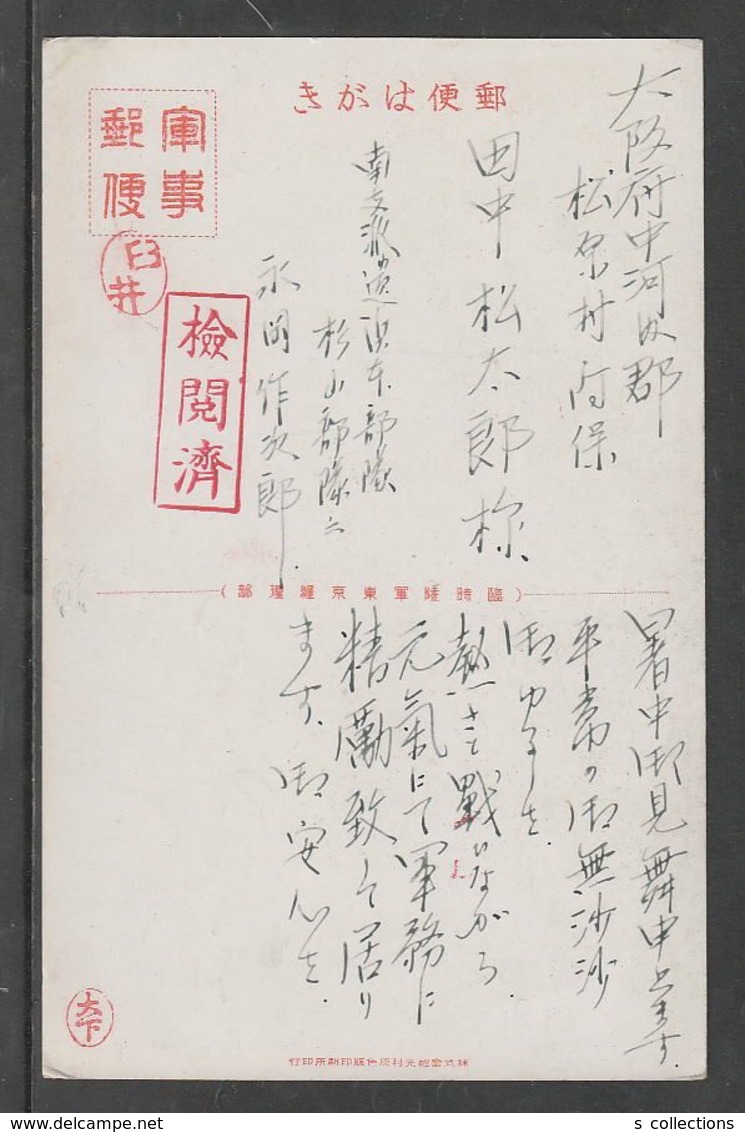 郵便はがき
軍事
郵便
臼井
檢閲濟
大阪府中河内郡
松原村阿保
田中松太郎様
南支派遣濱本部隊
杉山部隊
永岡作次郎
(臨時陸軍東京經理部)
暑中御見舞申上ます
平常の御無沙汰
御ゆるしを
熱さと戰いながら
元氣にて軍務に
精勵致して居り
ます、御安心を
大下
株式會社光村原色版印刷所印行
s collections